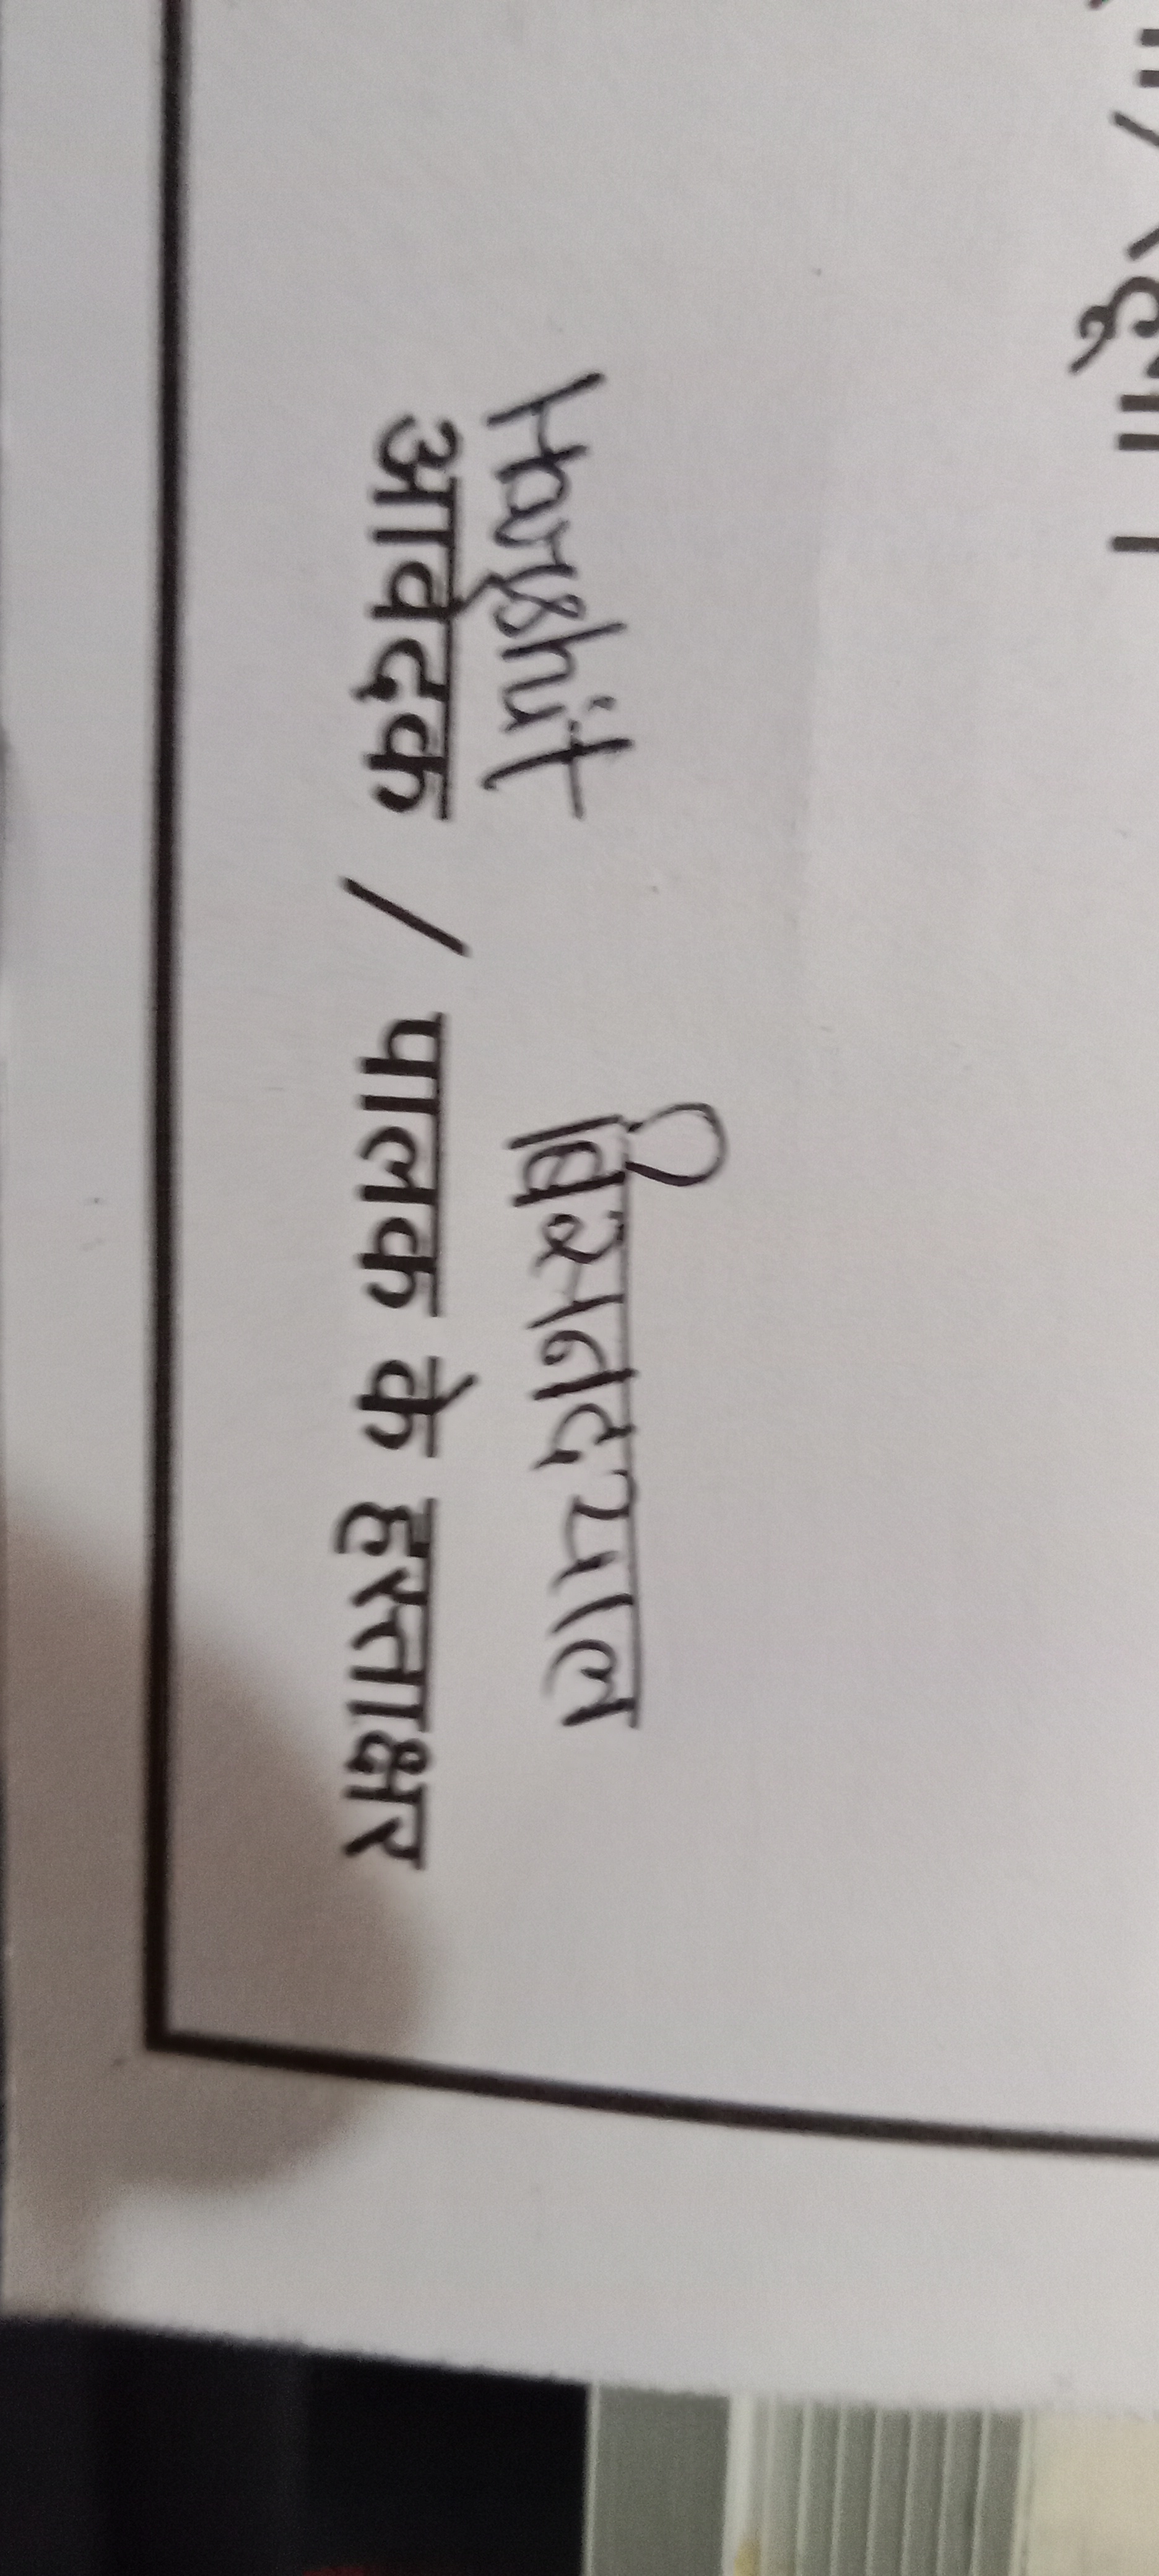 Harshit विशालदयाल
आवेदक / पालक के हस्ताक्षर